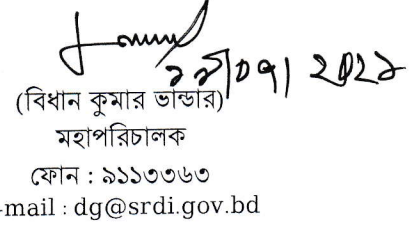 (বিধান কুমার ভান্ডার)
মহাপরিচালক
ফোন : ৯১১৩৩৬৩
-mail : dg@srdi.gov.bd